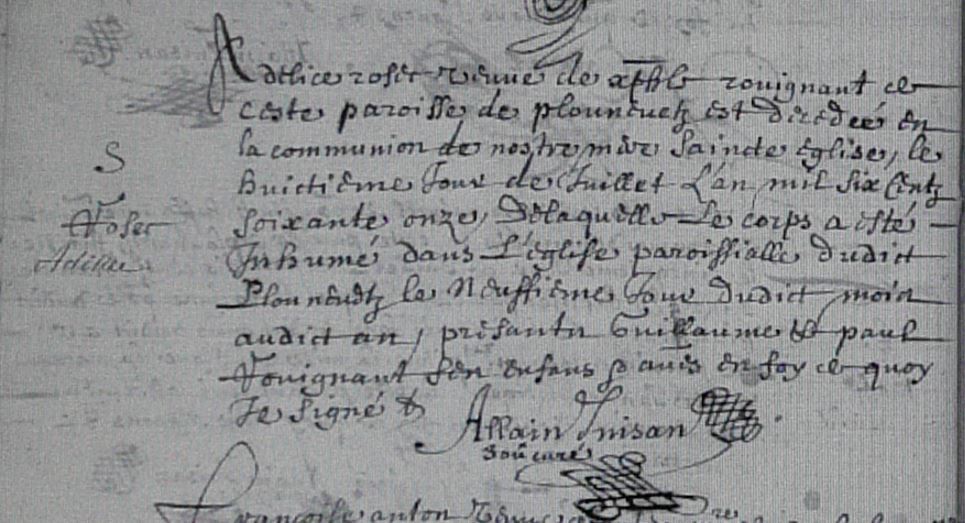 Adelice roser veuve de rouignant de
ceste paroisse de plounevetz est decedée en
la communion de nostre mere saincte église, le
S
huictiême Jour de Juillet L'an mil six centz
Roser
soixante onze, Delaquelle Le corps a esté
Adelice
Inhumé dans L'église paroissialle dudict
Plounevetz le Neuffiême Jour dudict mois
audict an, présants Guillaume & paul
Rouignant ses enfans en foy de quoy
Je signé &
Allain Inisan
Soucuré